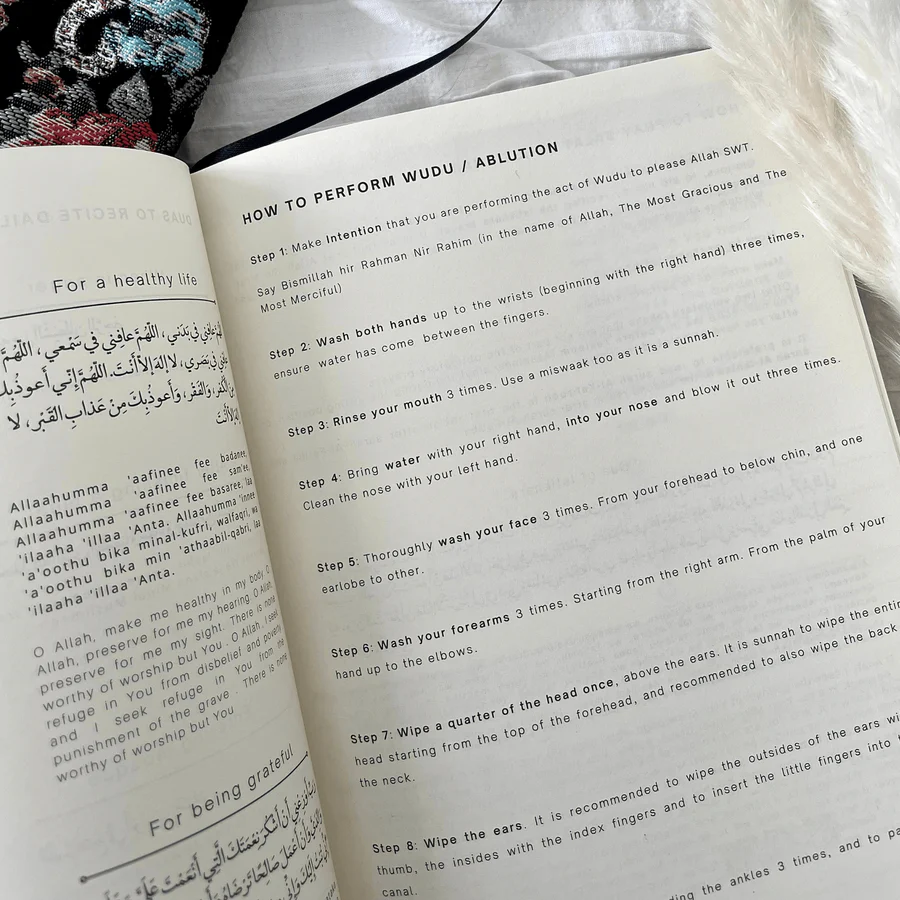 For a healthy life
اللّهُمَّ عافِني في بَدَني ، اللّهُمَّ عافِني في سَمْعي ، اللّهُمَّ
عافِني في بَصَري ، لا إلهَ إلاّ أَنْتَ. اللّهُمَّ إِنّي أَعوذُ بِكَ
مِنَ الْكُفر ، وَالفَقْر ، وَأَعوذُ بِكَ مِنْ عَذابِ القَبْر ، لا
إلهَ إلاّ أَنْتَ
Allaahumma 'aafinee fee badanee,
Allaahumma 'aafinee fee sam'ee,
Allaahumma 'aafinee fee basaree, laa
'ilaaha 'illaa 'Anta. Allaahumma 'innee
'a'oothu bika minal-kufri, walfaqri, wa
'a'oothu bika min 'athaabil-qabri, laa
'ilaaha 'illaa 'Anta.
O Allah, make me healthy in my body. O
Allah, preserve for me my hearing. O Allah,
preserve for me my sight. There is none
worthy of worship but You . O Allah , I seek
refuge in You from disbelief and poverty
and I seek refuge in You from the
punishment of the grave . There is none
worthy of worship but You
For being grateful
أَوْزِعْنِي أَنْ أَشْكُرَ نِعْمَتَكَ الَّتِي أَنْعَمْتَ عَلَيَّ
وَأَنْ أَعْمَلَ صَالِحًا تَرْضَاهُ
HOW TO PERFORM WUDU / ABLUTION
Step 1: Make Intention that you are performing the act of Wudu to please Allah SWT.
Say Bismillah hir Rahman Nir Rahim (in the name of Allah, The Most Gracious and The
Most Merciful)
Step 2: Wash both hands up to the wrists (beginning with the right hand) three times,
ensure water has come between the fingers.
Step 3: Rinse your mouth 3 times. Use a miswaak too as it is a sunnah.
Step 4: Bring water with your right hand, into your nose and blow it out three times.
Clean the nose with your left hand.
Step 5: Thoroughly wash your face 3 times. From your forehead to below chin, and one
earlobe to other.
Step 6: Wash your forearms 3 times. Starting from the right arm. From the palm of your
hand up to the elbows.
Step 7: Wipe a quarter of the head once, above the ears. It is sunnah to wipe the
head starting from the top of the forehead, and recommended to also wipe the back
the neck.
Step 8: Wipe the ears. It is recommended to wipe the outsides of the ears
thumb, the insides with the index fingers and to insert the little fingers into
canal.
the ankles 3 times, and to